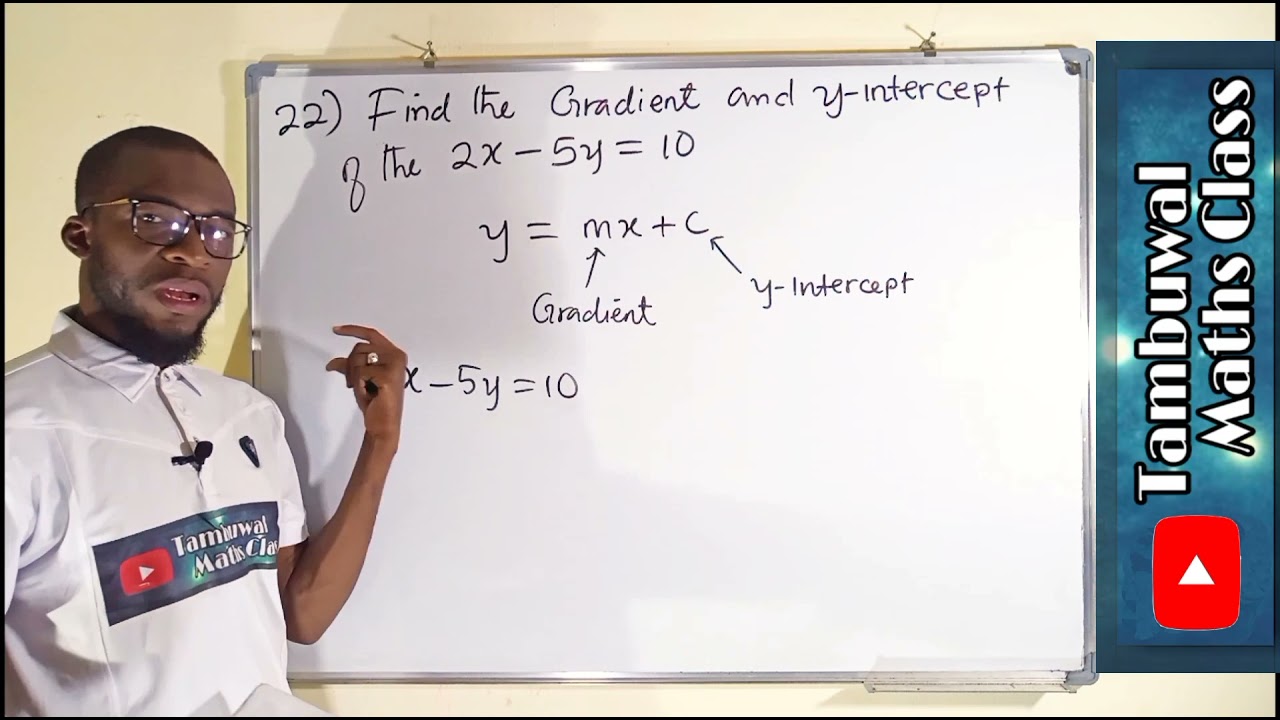 22) Find the Gradient and y-intercept
of the 2x – 5y = 10
y = mx + c
Gradient
y-Intercept
x – 5y = 10
Tambuwal
Maths Class
Tambuwal
Maths Clas